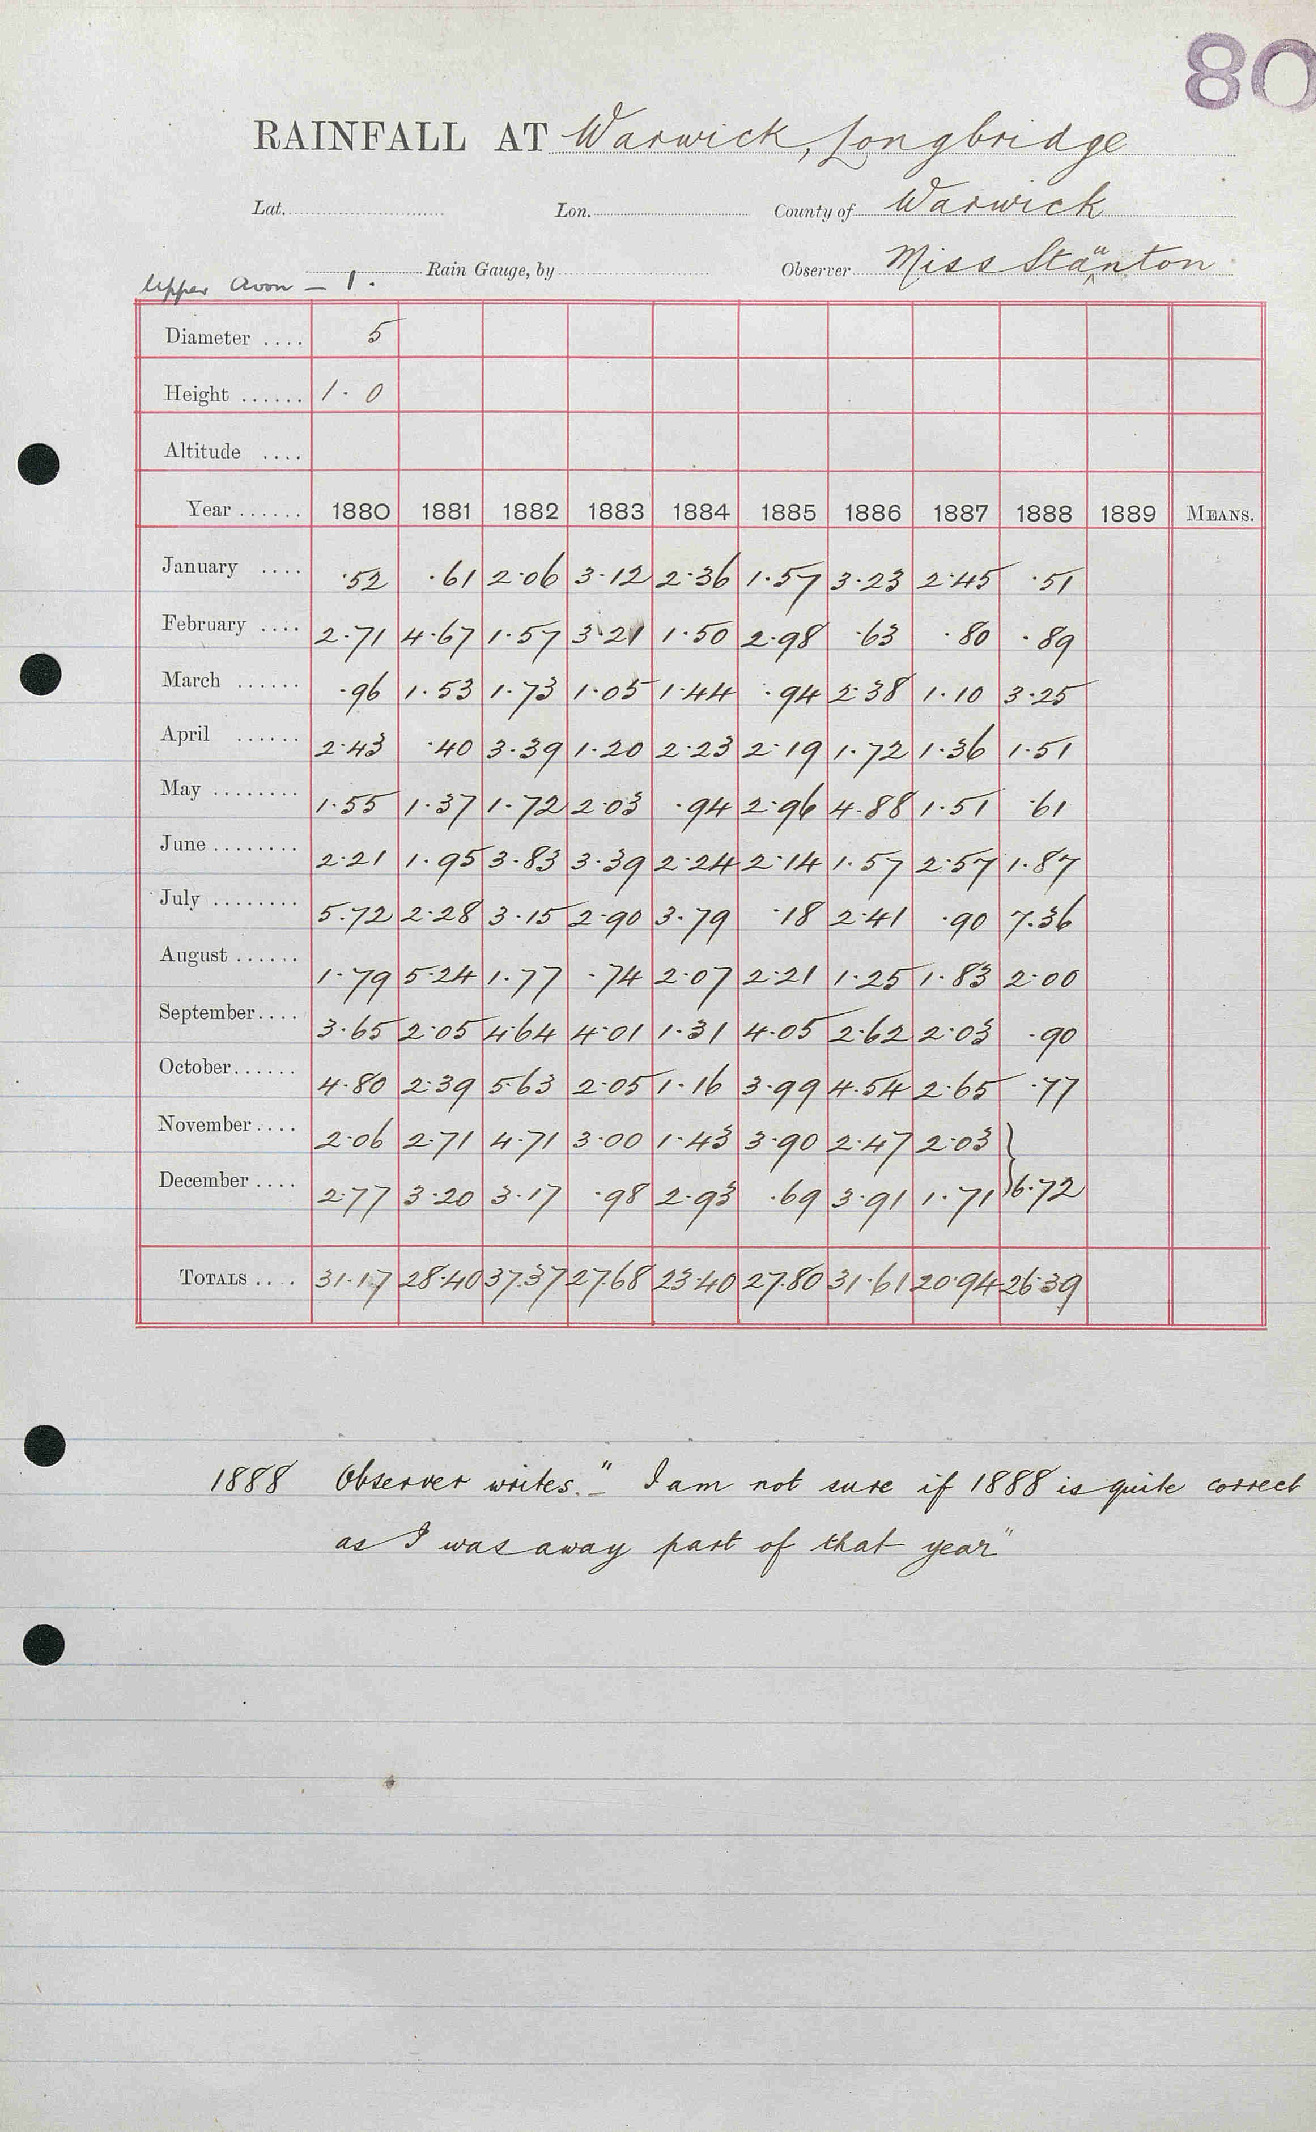 80
RAINFALL AT Warwick, Longbridge
Lat. Lon. County of Warwick
Rain Gauge, by Observer Miss Staunton
Upper Avon — 1.
Diameter .... 5
Height ...... 1·0
Altitude ....
Year ...... 1880 1881 1882 1883 1884 1885 1886 1887 1888 1889 MEANS.
January .... ·52 ·61 2·06 3·12 2·36 1·57 3·23 2·45 ·51
February .... 2·71 4·67 1·57 3·21 1·50 2·98 ·63 ·80 ·89
March ...... ·96 1·53 1·73 1·05 1·44 ·94 2·38 1·10 3·25
April ...... 2·43 ·40 3·39 1·20 2·23 2·19 1·72 1·36 1·51
May ........ 1·55 1·37 1·72 2·03 ·94 2·96 4·88 1·51 ·61
June ........ 2·21 1·95 3·83 3·39 2·24 2·14 1·57 2·57 1·87
July ........ 5·72 2·28 3·15 2·90 3·79 ·18 2·41 ·90 7·36
August ...... 1·79 5·24 1·77 ·74 2·07 2·21 1·25 1·83 2·00
September .... 3·65 2·05 4·64 4·01 1·31 4·05 2·62 2·03 ·90
October ...... 4·80 2·39 5·63 2·05 1·16 3·99 4·54 2·65 ·77
November .... 2·06 2·71 4·71 3·00 1·43 3·90 2·47 2·03
December .... 2·77 3·20 3·17 ·98 2·93 ·69 3·91 1·71 } 6·72
TOTALS .... 31·17 28·40 37·37 27·68 23·40 27·80 31·61 20·94 26·39
1888 Observer writes.— "I am not sure if 1888 is quite correct
as I was away part of that year"